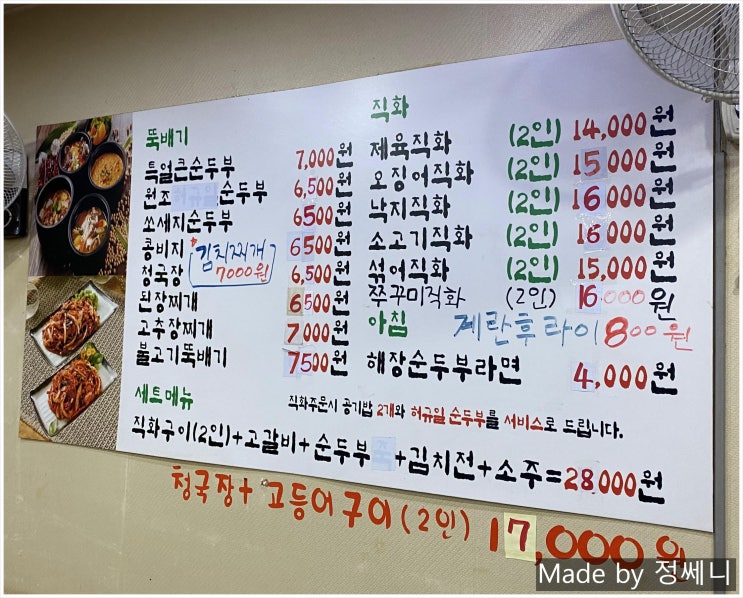 뚝배기
특얼큰순두부 7,000원
원조 허규일 순두부 6,500원
쏘세지순두부 6500원
콩비지 6500원
청국장 6,500원
*김치찌개
7000원
된장찌개 6500원
고추장찌개 7000원
불고기뚝배기 7500원
직화
제육직화 (2인) 14,000원
오징어직화 (2인) 15000원
낙지직화 (2인) 16000원
소고기직화 (2인) 16000원
섞어직화 (2인) 15,000원
쭈꾸미직화 (2인) 16,000원
아침 계란후라이 800원
해장순두부라면 4,000원
직화주문시 공기밥 2개와 허규일 순두부를 서비스로 드립니다.
세트메뉴
직화구이(2인)+고갈비+순두부+김치전+소주=28000원
청국장+고등어구이(2인) 17,000원
Made by 정쎄니